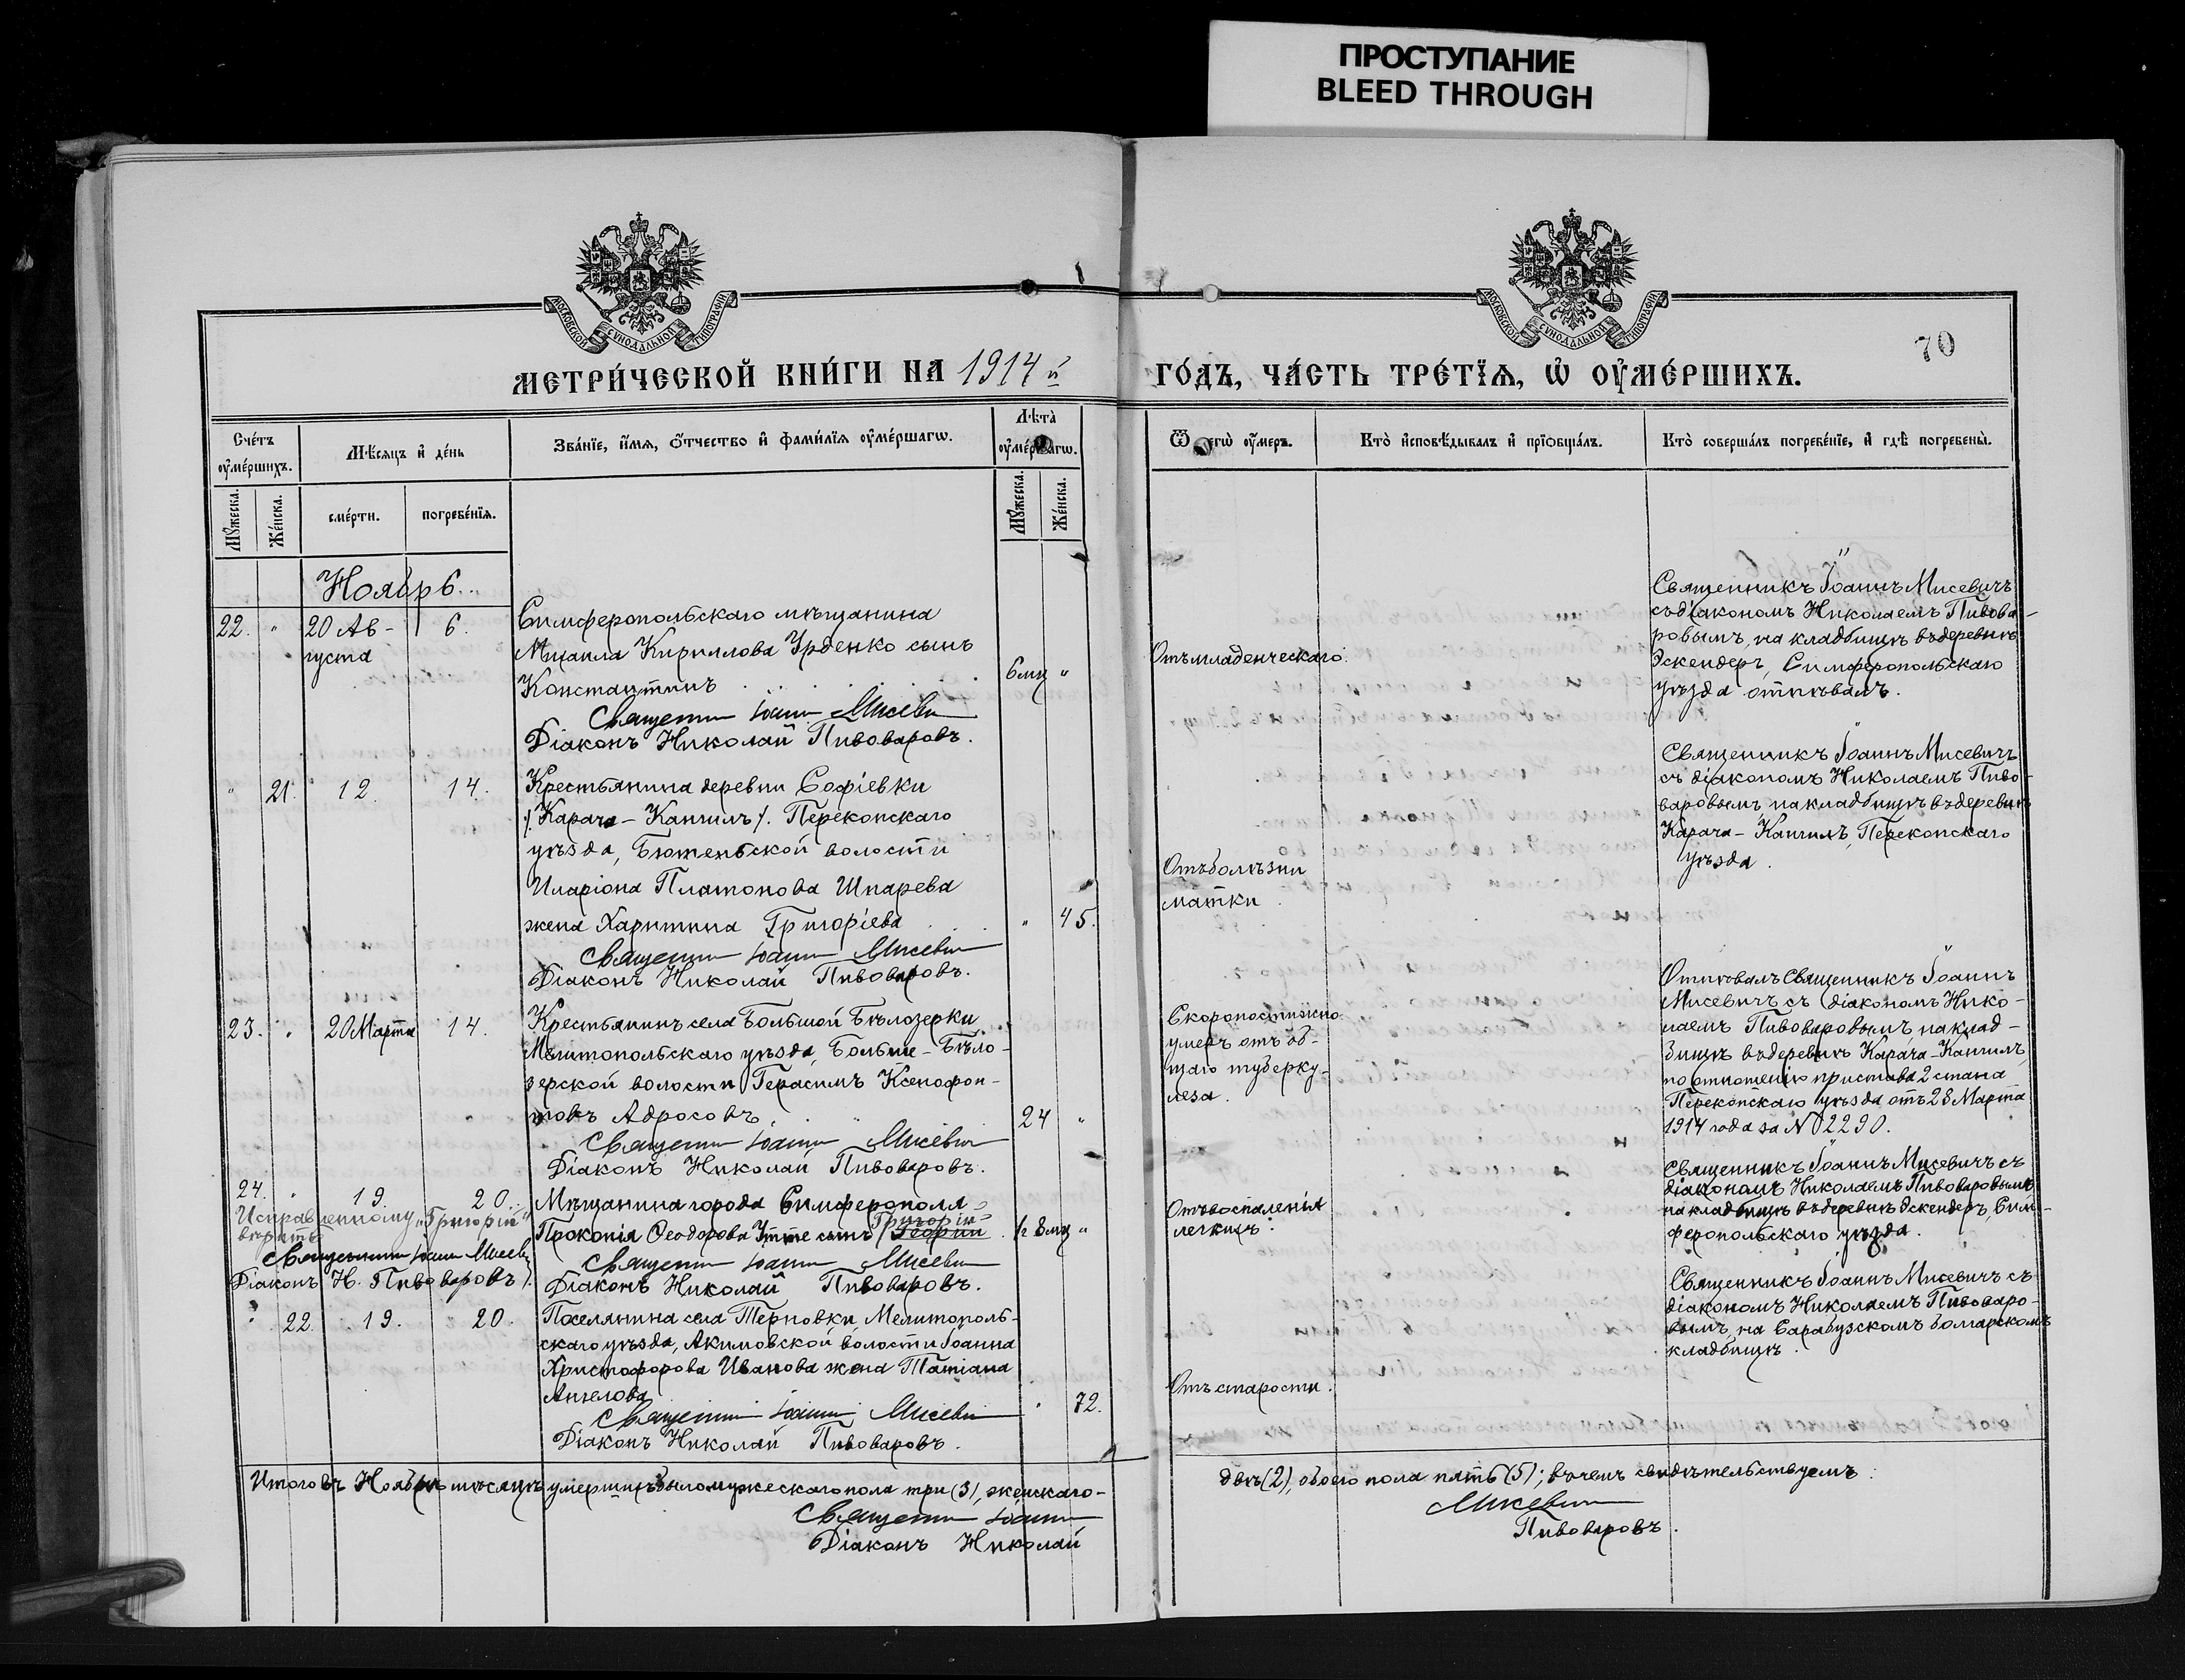 ПРОСТУПАНИЕ
BLEED THROUGH
МОСКОВСКОЙ СѴНОДАЛЬНОЙ ТИПОГРАФІИ
МОСКОВСКОЙ СѴНОДАЛЬНОЙ ТИПОГРАФІИ
70
МЕТРИ́ЧЕСКОЙ КНИ́ГИ НА 1914 й
ГО́ДЪ, ЧА́СТЬ ТРЕ́ТЇѦ, Ѡ҆ ОУ҆МЕ́РШИХЪ.
Сче́тъ оу҆ме́ршихъ.
Мѣ́сѧцъ и҆ де́нь
Зва́нїе, и҆́мѧ, ѻ҆́тчество и҆ фами́лїѧ оу҆ме́ршагѡ.
Лѣ́та оу҆ме́ршагѡ.
Мꙋ́жеска.
Же́нска.
сме́рти.
погребе́нїѧ.
Мꙋ́жеска.
Же́нска.
Ѿ чегѡ̀ оу҆́меръ.
Кто̀ и҆сповѣ́дывалъ и҆ прїѻбща́лъ.
Кто̀ соверша́лъ погребе́нїе, и҆ гдѣ̀ погребены̀.
Ноябрь.
22. " 20 Ав- 6.
густа
Симферопольскаго мѣщанина
Михаила Кириллова Урденко сынъ
Константинъ
6 мц "
Священник Іоанн Мисевич
Діаконъ Николай Пивоваровъ.
Отъ младенческаго.
Священникъ Іоаннъ Мисевичъ
съ діакономъ Николаемъ Пивова-
ровымъ, на кладбищѣ въ деревнѣ
Эскендеръ, Симферопольскаго
уѣзда отпѣвалъ.
" 21. 12. 14.
Крестьянина деревни Софіевки
/. Карача-Кангилъ /. Перекопскаго
уѣзда, Бютеньской волости
Иларіона Платонова Шпарева
жена Харитина Григоріева
" 45.
Священник Іоанн Мисевич
Діаконъ Николай Пивоваровъ.
Отъ болѣзни
матки.
Священникъ Іоаннъ Мисевичъ
съ діакономъ Николаемъ Пиво-
варовымъ, на кладбищѣ въ деревнѣ
Карача-Кангилъ, Перекопскаго
уѣзда.
23. " 20 Марта 14.
Крестьянинъ села Большой Бѣлозерки
Мелитопольскаго уѣзда, Больше-Бѣло-
зерской волости Герасимъ Ксенофон-
товъ Адросовъ
24 "
Священник Іоанн Мисевич
Діаконъ Николай Пивоваровъ.
Скоропостижно
умеръ отъ об-
щаго туберку-
леза.
Отпѣвалъ Священникъ Іоаннъ
Мисевичъ съ діакономъ Нико-
лаемъ Пивоваровымъ, на клад-
бищѣ въ деревнѣ Карача-Кангилъ
по отношенію пристава 2 стана
Перекопскаго уѣзда отъ 28 Марта
1914 года за № 2290.
24. " 19. 20.
Исправленному "Григорій"
вѣрить
Священник Іоанн Мисевич
Діаконъ Н. Пивоваровъ.
Мѣщанина города Симферополя
Прокопія Ѳеодорова Утте сынъ Георгій
Григорій
1 г 8 мц "
Священник Іоанн Мисевич
Діаконъ Николай Пивоваровъ.
Отъ воспаленія
легкихъ.
Священникъ Іоаннъ Мисевичъ съ
діакономъ Николаемъ Пивоваровымъ
на кладбищѣ въ деревнѣ Эскендеръ, Сим-
феропольскаго уѣзда.
" 22. 19. 20.
Поселянина села Терновки Мелитополь-
скаго уѣзда, Акимовской волости Іоанна
Христофорова Иванова жена Татіана
Ангелова
" 72.
Священник Іоанн Мисевич
Діаконъ Николай Пивоваровъ.
Отъ старости.
Священникъ Іоаннъ Мисевичъ съ
діакономъ Николаемъ Пивоваро-
вымъ, на Сарабузскомъ болгарскомъ
кладбищѣ.
Итого въ Ноябрѣ мѣсяцѣ умершихъ было мужескаго пола три (3), женскаго-
двѣ (2), обоего пола пять (5); въ чемъ свидѣтельствуемъ:
Священник Іоанн Мисевич
Діаконъ Николай Пивоваровъ.